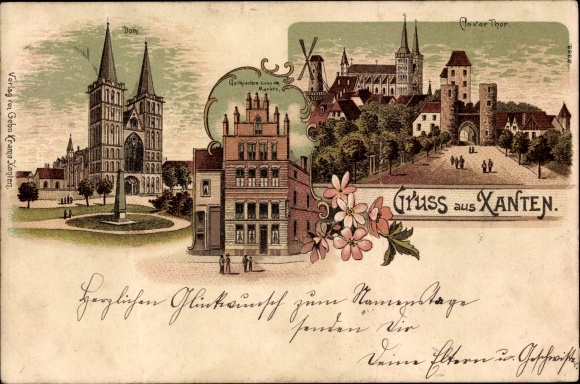 Dom
Clever Thor.
Gothisches Haus am
Markte.
Gruss aus Xanten.
Verlag von Gebr. Krams Xanten.
Herzlichen Glückwunsch zum Namenstage
senden Dir
Deine Eltern u. Geschwister